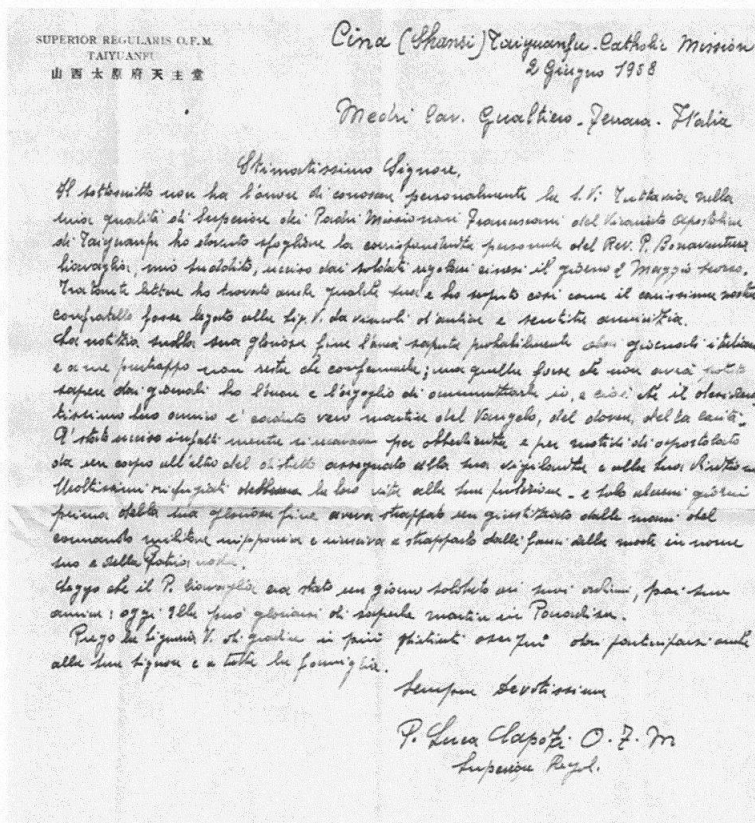 SUPERIOR REGULARIS O.F.M.
TAIYUANFU
山西太原府天主堂
Cina (Shansi) Taiyuanfu - Catholic Mission
2 Giugno 1938
Medri Cav. Gualtiero - Ferrara - Italia
Stimatissimo Signore,
Il sottoscritto non ha l'onore di conoscere personalmente la S.V. Tuttavia nella
mia qualità di Superiore dei Padri Missionari Francescani del Vicariato Apostolico
di Taiyuanfu ho dovuto sfogliare la corrispondenza personale del Rev. P. Bonaventura
mio suddito, ucciso dai soldati regolari cinesi il giorno 2 Maggio scorso.
Tra tante lettere ho trovato anche qualche sua e ho saputo così come il carissimo nostro
confratello fosse legato alla Sig. V. da vincoli d'antica e sentita amicizia.
La notizia sulla sua gloriosa fine l'avrà saputa probabilmente dai giornali italiani
e a me purtroppo non resta che confermarla; ma quello forse che non avrà potuto
sapere dai giornali ho l'onore e l'orgoglio di io, e cioè che il
suo amico è caduto vero martire del Vangelo, del dovere, della carità.
E' stato ucciso infatti mentre si recava per obbedienza e per motivi di apostolato
da un capo all'altro del distretto assegnato alla sua vigilanza e alla sua direzione.
Moltissimi rifugiati la loro vita alla sua protezione - e solo alcuni giorni
prima della sua gloriosa fine aveva strappato un giustiziato dalle mani del
comando militare nipponico e riusciva a strapparlo dalle fauci della morte in nome
suo e della Patria
Leggo che il P. era stato un giorno soldato ai suoi ordini, poi suo
amico: oggi Ella può gloriarsi di saperlo martire in Paradiso.
Prego la Signoria V. di gradire i più ossequi da parteciparsi anche
alla sua signora e a tutta la famiglia.
Sempre devotissimo
P. Luca Capozi O.F.M
Superiore Regol.